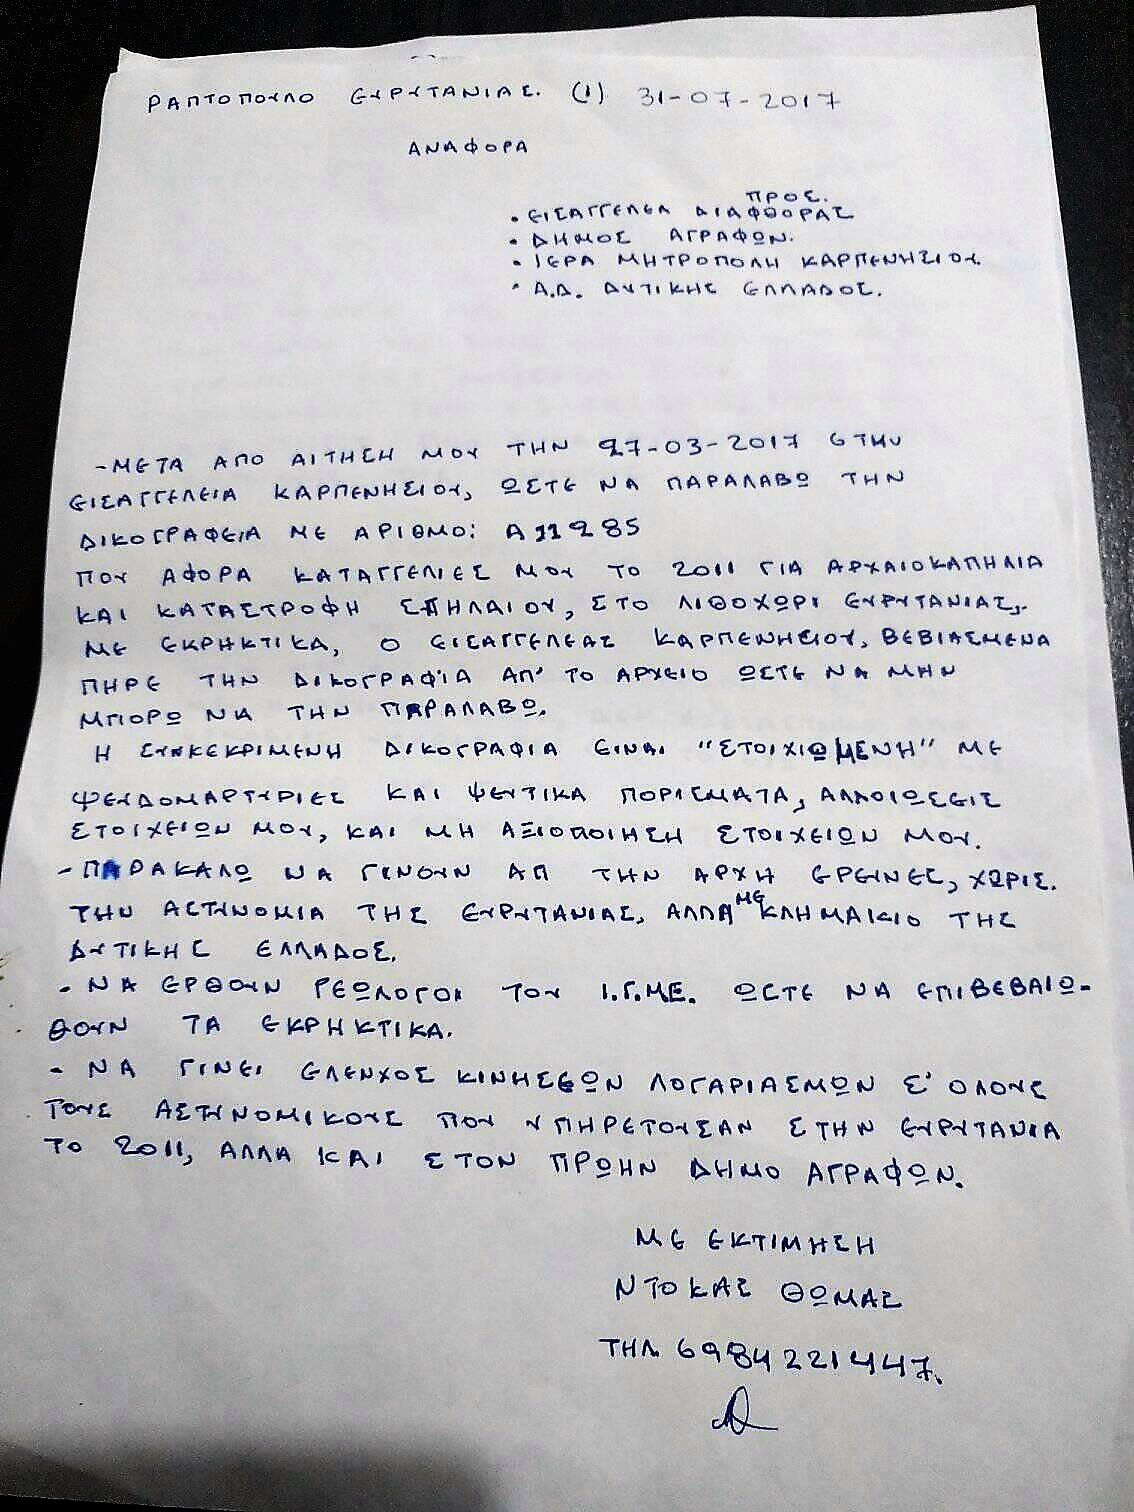 ΡΑΠΤΟΠΟΥΛΟ ΕΥΡΥΤΑΝΙΑΣ. (1) 31-07-2017
ΑΝΑΦΟΡΑ
ΠΡΟΣ.
• ΕΙΣΑΓΓΕΛΕΑ ΔΙΑΦΘΟΡΑΣ
• ΔΗΜΟΣ ΑΓΡΑΦΩΝ.
• ΙΕΡΑ ΜΗΤΡΟΠΟΛΗ ΚΑΡΠΕΝΗΣΙΟΥ.
• Α.Δ. ΔΥΤΙΚΗΣ ΕΛΛΑΔΟΣ.
- ΜΕΤΑ ΑΠΟ ΑΙΤΗΣΗ ΜΟΥ ΤΗΝ 27-03-2017 ΣΤΗΝ
ΕΙΣΑΓΓΕΛΕΙΑ ΚΑΡΠΕΝΗΣΙΟΥ, ΩΣΤΕ ΝΑ ΠΑΡΑΛΑΒΩ ΤΗΝ
ΔΙΚΟΓΡΑΦΕΙΑ ΜΕ ΑΡΙΘΜΟ: Α11285
ΠΟΥ ΑΦΟΡΑ ΚΑΤΑΓΓΕΛΙΕΣ ΜΟΥ ΤΟ 2011 ΓΙΑ ΑΡΧΑΙΟΚΑΠΗΛΙΑ
ΚΑΙ ΚΑΤΑΣΤΡΟΦΗ ΣΠΗΛΑΙΟΥ, ΣΤΟ ΛΙΘΟΧΩΡΙ ΕΥΡΥΤΑΝΙΑΣ,
ΜΕ ΕΚΡΗΚΤΙΚΑ, Ο ΕΙΣΑΓΓΕΛΕΑΣ ΚΑΡΠΕΝΗΣΙΟΥ, ΒΕΒΙΑΣΜΕΝΑ
ΠΗΡΕ ΤΗΝ ΔΙΚΟΓΡΑΦΙΑ ΑΠ' ΤΟ ΑΡΧΕΙΟ ΩΣΤΕ ΝΑ ΜΗΝ
ΜΠΟΡΩ ΝΑ ΤΗΝ ΠΑΡΑΛΑΒΩ.
Η ΣΥΝΚΕΚΡΙΜΕΝΗ ΔΙΚΟΓΡΑΦΙΑ ΕΙΝΑΙ "ΣΤΟΙΧΙΩΜΕΝΗ" ΜΕ
ΨΕΥΔΟΜΑΡΤΥΡΙΕΣ ΚΑΙ ΨΕΥΤΙΚΑ ΠΟΡΙΣΜΑΤΑ, ΑΛΛΟΙΩΣΕΙΣ
ΣΤΟΙΧΕΙΩΝ ΜΟΥ, ΚΑΙ ΜΗ ΑΞΙΟΠΟΙΗΣΗ ΣΤΟΙΧΕΙΩΝ ΜΟΥ.
- ΠΑΡΑΚΑΛΩ ΝΑ ΓΙΝΟΥΝ ΑΠ ΤΗΝ ΑΡΧΗ ΕΡΕΥΝΕΣ, ΧΩΡΙΣ.
ΤΗΝ ΑΣΤΥΝΟΜΙΑ ΤΗΣ ΕΥΡΥΤΑΝΙΑΣ, ΑΛΛΑ ΜΕ ΚΛΗΜΑΚΙΟ ΤΗΣ
ΔΥΤΙΚΗΣ ΕΛΛΑΔΟΣ.
- ΝΑ ΕΡΘΟΥΝ ΓΕΩΛΟΓΟΙ ΤΟΥ Ι.Γ.ΜΕ. ΩΣΤΕ ΝΑ ΕΠΙΒΕΒΑΙΩ-
ΘΟΥΝ ΤΑ ΕΚΡΗΚΤΙΚΑ.
- ΝΑ ΓΙΝΕΙ ΕΛΕΝΧΟΣ ΚΙΝΗΣΕΩΝ ΛΟΓΑΡΙΑΣΜΩΝ Σ' ΟΛΟΥΣ
ΤΟΥΣ ΑΣΤΥΝΟΜΙΚΟΥΣ ΠΟΥ ΥΠΗΡΕΤΟΥΣΑΝ ΣΤΗΝ ΕΥΡΥΤΑΝΙΑ
ΤΟ 2011, ΑΛΛΑ ΚΑΙ ΣΤΟΝ ΠΡΩΗΝ ΔΗΜΟ ΑΓΡΑΦΩΝ.
ΜΕ ΕΚΤΙΜΗΣΗ
ΝΤΟΚΑΣ ΘΩΜΑΣ
ΤΗΛ. 69842221447.